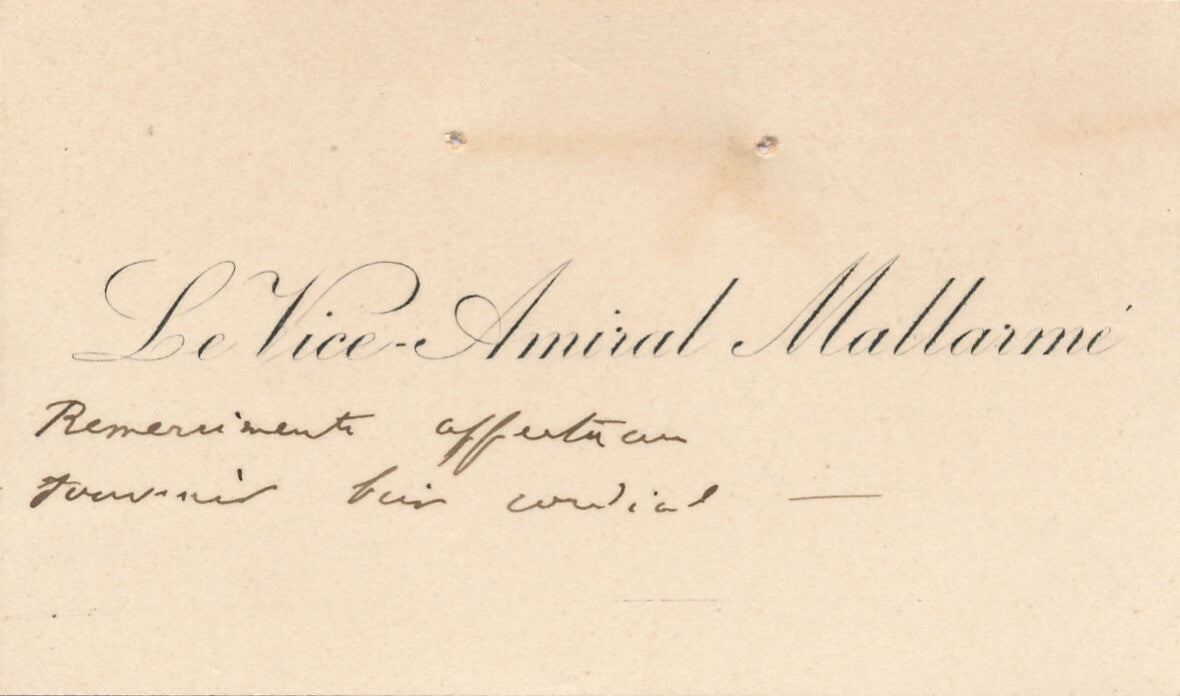 Le Vice-Amiral Mallarmé
Remerciments affectueux
souvenir bien cordial —